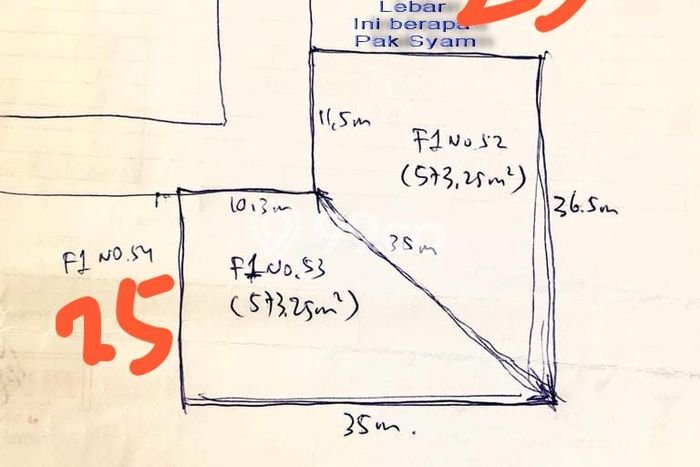 Lebar
Ini berapa
Pak Syam
11,5m
F1 No.52
(573,25m²)
36.5m
10.3m
35m
F1 NO.54
F1 No.53
(573,25m²)
25
35m.